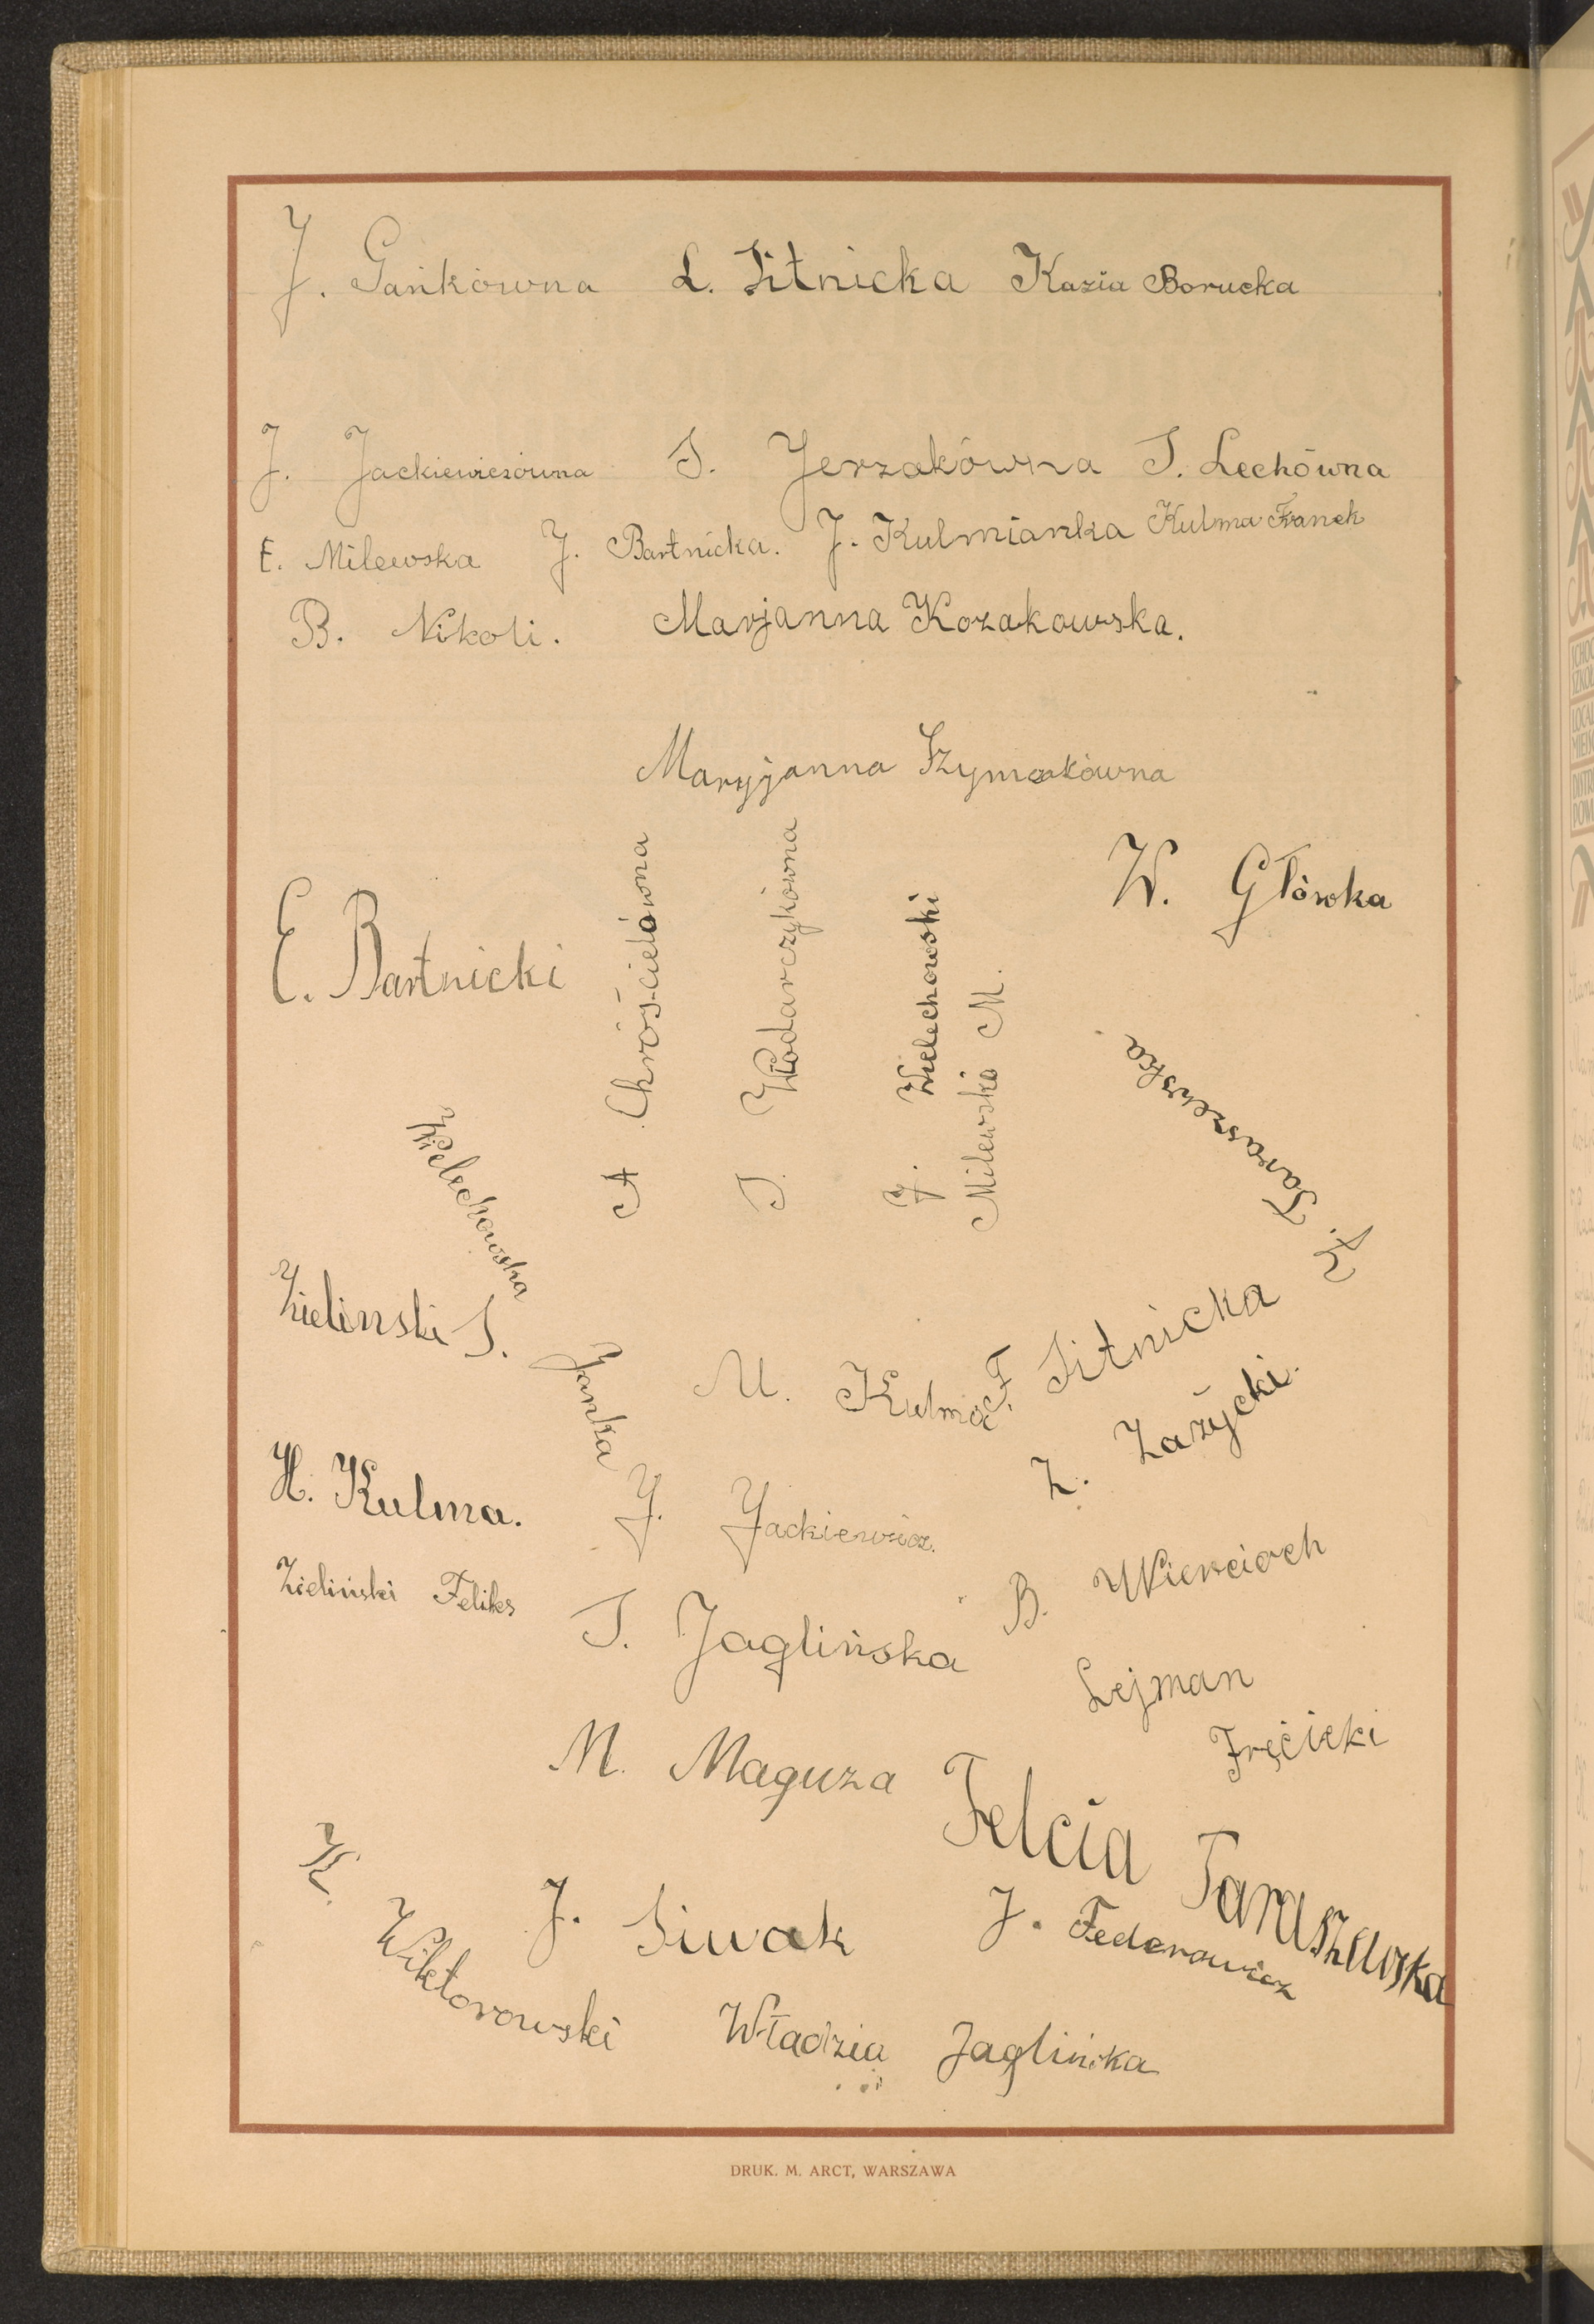 J. Gańkówna L. Sitnicka Kazia Borucka
J. Jackiewiczówna S. Jerzakówna S. Lechówna
E. Milewska J. Bartnicka. J. Kulmianka Kulma Franek
B. Nikoli. Marjanna Kozakowska.
Maryjanna Szymakówna
W. Główka
E. Bartnicki
A Chróścielówna
S. Włodarczykówna
J. Wielechowski
Milewski M.
Z. Taraszewska
Janka Wielechowska
Zielinski S.
M. Kulma
F. Sitnicka
Z. Zażycki.
H. Kulma.
J. Jackiewicz.
Zieliński Feliks
B. Wiercioch
S. Jaglińska
Lejman
M. Maguza
Felcia Taraszewska
K. Wiktorowski
J. Siwak
J. Federowicz
Władzia Jaglińska
DRUK. M. ARCT, WARSZAWA